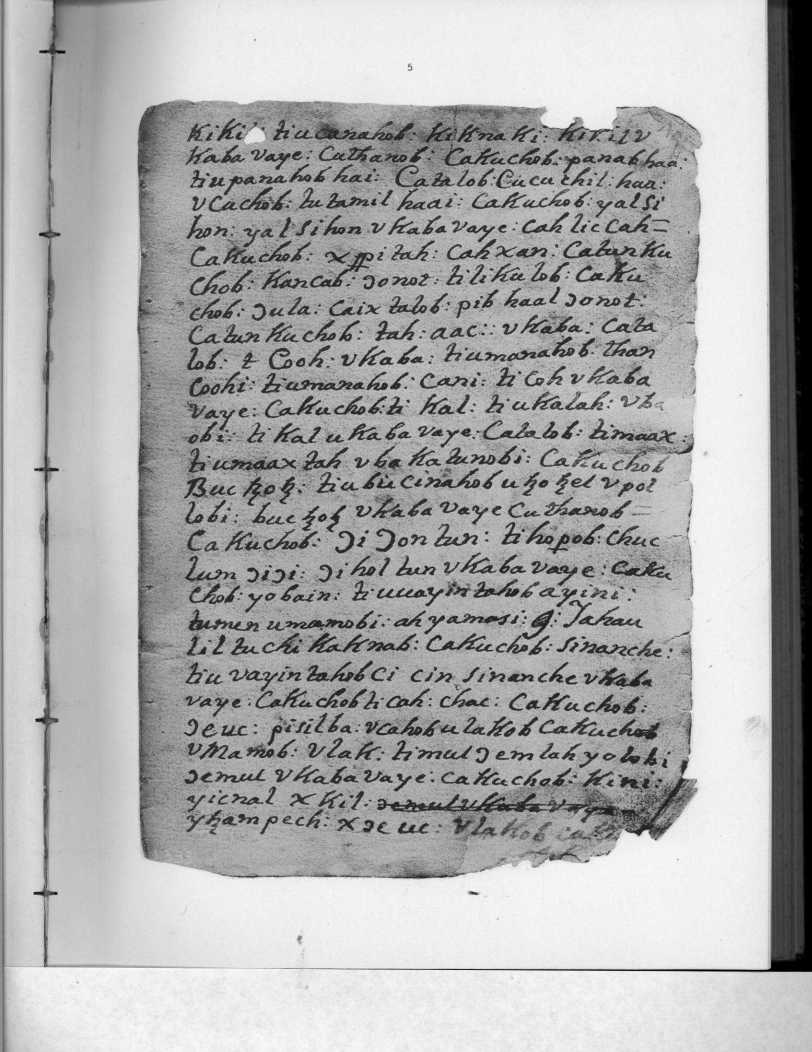 5
Kiki tiucanahob: Kiknaki: Kiritv
Kaba vaye: Cuthanob: CaKuchob: panabhaa:
tiupanahob hai: Catalob: Cucuchil: haa:
vCachob: tutamil haai: CaKuchob: yalsi
hon: yalsihon vKabavaye: cah lic Cah=
CaKuchob: xppitah: Cahxan: CatunKu
Chob: Kancab: ɔonot: tilikulob: CaKu
chob: ɔula: Caix talob: pib haal ɔonot:
Catun Kuchob: tah: aac:: vKaba: Cata
lob: t Cooh: vKaba: tiumanahob: than
Coohi: tiumanahob: Cani: ti Coh vKaba
vaye: CaKuchob: ti Kal: tiuKalah: vba
obi: tiKal uKaba vaye: Catalob: timaax:
tiumaax tah vba Katunobi: CaKuchob
Buc ꜩoꜩ: tiubucinahob uꜩoꜩel vpol
lobi: bucꜩoꜩ vKaba vaye Cuthanob=
CaKuchob: ɔi ɔontun: tihopob: chuc
lum ɔiɔi: ɔiholtun vKaba vaye: CaKu
Chob: yobain: tiuuayintahob ayini:
tumen umamobi: ah yamasi: 9: Jahau
lil tuchi KaKnab: CaKuchob: Sinanche:
tiu vayintahob Ci cin Sinanche vKaba
vaye: CaKuchob ti cah: chac: CaKuchob:
ɔeuc: pisilba: vcahob ulakob CaKuchob
vMamob: vlak: timul ɔemlah yolobi
ɔemul vKabavaye: CaKuchob: Kini:
yicnal xKil: ɔemul uKaba vaye
yꜩampech: xɔeuc: vlakob caKu